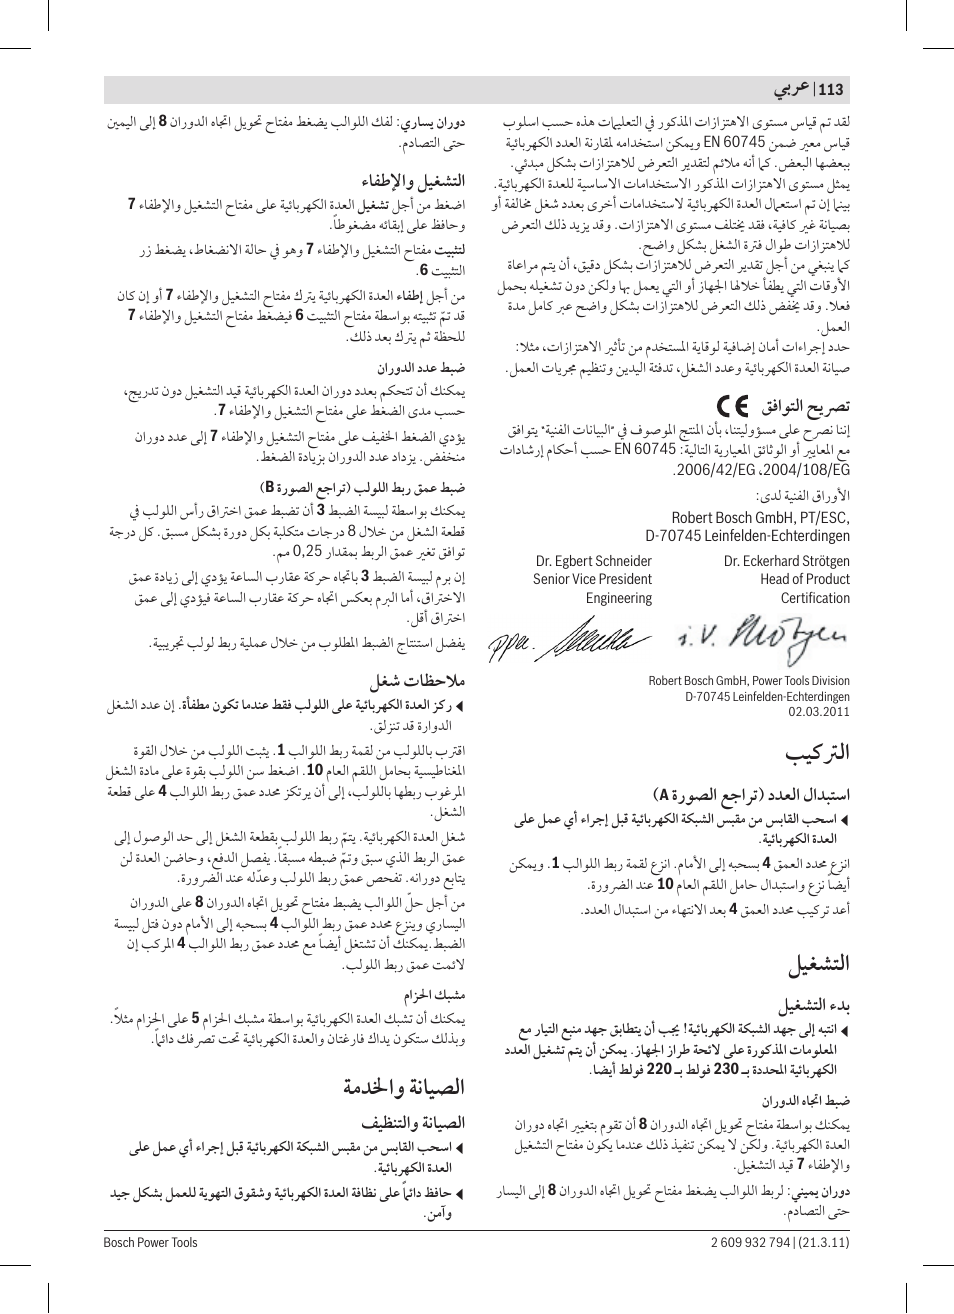 عربي | 113
لقد تم قياس مستوى الاهتزازات المذكور في التعليمات هذه حسب اسلوب
قياس معير ضمن EN 60745 ويمكن استخدامه لمقارنة العدد الكهربائية
ببعضها البعض. كما أنه ملائم لتقدير التعرض للاهتزازات بشكل مبدئي.
يمثل مستوى الاهتزازات المذكور الاستخدامات الاساسية للعدة الكهربائية.
بينما إن تم استعمال العدة الكهربائية لاستخدامات أخرى بعدد شغل مخالفة أو
بصيانة غير كافية، فقد يختلف مستوى الاهتزازات. وقد يزيد ذلك التعرض
للاهتزازات طوال فترة الشغل بشكل واضح.
كما ينبغي من أجل تقدير التعرض للاهتزازات بشكل دقيق، أن يتم مراعاة
الأوقات التي يطفأ خلالها الجهاز أو التي يعمل بها ولكن دون تشغيله بحمل
فعلا. وقد يخفض ذلك التعرض للاهتزازات بشكل واضح عبر كامل مدة
العمل.
حدد إجراءات أمان إضافية لوقاية المستخدم من تأثير الاهتزازات، مثلا:
صيانة العدة الكهربائية وعدد الشغل، تدفئة اليدين وتنظيم مجريات العمل.
تصريح التوافق CE
إننا نصرح على مسؤوليتنا، بأن المنتج الموصوف في "البيانات الفنية" يتوافق
مع المعايير أو الوثائق المعيارية التالية: EN 60745 حسب أحكام إرشادات
2004/108/EG، 2006/42/EG.
الأوراق الفنية لدى:
Robert Bosch GmbH, PT/ESC,
D-70745 Leinfelden-Echterdingen
Dr. Egbert Schneider
Senior Vice President
Engineering
Dr. Eckerhard Strötgen
Head of Product
Certification
ppa.
i.V. Strötgen
Robert Bosch GmbH, Power Tools Division
D-70745 Leinfelden-Echterdingen
02.03.2011
التركيب
استبدال العدد (تراجع الصورة A)
◀ اسحب القابس من مقبس الشبكة الكهربائية قبل إجراء أي عمل على
العدة الكهربائية.
انزع محدد العمق 4 بسحبه إلى الأمام. انزع لقمة ربط اللوالب 1. ويمكن
أيضاً نزع واستبدال حامل اللقم العام 10 عند الضرورة.
أعد تركيب محدد العمق 4 بعد الانتهاء من استبدال العدد.
التشغيل
بدء التشغيل
◀ انتبه إلى جهد الشبكة الكهربائية! يجب أن يتطابق جهد منبع التيار مع
المعلومات المذكورة على لائحة طراز الجهاز. يمكن أن يتم تشغيل العدد
الكهربائية المحددة بـ 230 فولط بـ 220 فولط أيضا.
ضبط اتجاه الدوران
يمكنك بواسطة مفتاح تحويل اتجاه الدوران 8 أن تقوم بتغيير اتجاه دوران
العدة الكهربائية. ولكن لا يمكن تنفيذ ذلك عندما يكون مفتاح التشغيل
والإطفاء 7 قيد التشغيل.
دوران يميني: لربط اللوالب يضغط مفتاح تحويل اتجاه الدوران 8 إلى اليسار
حتى التصادم.
دوران يساري: لفك اللوالب يضغط مفتاح تحويل اتجاه الدوران 8 إلى اليمين
حتى التصادم.
التشغيل والإطفاء
اضغط من أجل تشغيل العدة الكهربائية على مفتاح التشغيل والإطفاء 7
وحافظ على إبقائه مضغوطاً.
لتثبيت مفتاح التشغيل والإطفاء 7 وهو في حالة الانضغاط، يضغط زر
التثبيت 6.
من أجل إطفاء العدة الكهربائية يترك مفتاح التشغيل والإطفاء 7 أو إن كان
قد تمّ تثبيته بواسطة مفتاح التثبيت 6 فيضغط مفتاح التشغيل والإطفاء 7
للحظة ثم يترك بعد ذلك.
ضبط عدد الدوران
يمكنك أن تتحكم بعدد دوران العدة الكهربائية قيد التشغيل دون تدريج،
حسب مدى الضغط على مفتاح التشغيل والإطفاء 7.
يؤدي الضغط الخفيف على مفتاح التشغيل والإطفاء 7 إلى عدد دوران
منخفض. يزداد عدد الدوران بزيادة الضغط.
ضبط عمق ربط اللولب (تراجع الصورة B)
يمكنك بواسطة لبيسة الضبط 3 أن تضبط عمق اختراق رأس اللولب في
قطعة الشغل من خلال 8 درجات متكلبة بكل دورة بشكل مسبق. كل درجة
توافق تغير عمق الربط بمقدار 0,25 مم.
إن برم لبيسة الضبط 3 باتجاه حركة عقارب الساعة يؤدي إلى زيادة عمق
الاختراق، أما البرم بعكس اتجاه حركة عقارب الساعة فيؤدي إلى عمق
اختراق أقل.
يفضل استنتاج الضبط المطلوب من خلال عملية ربط لولب تجريبية.
ملاحظات شغل
◀ ركز العدة الكهربائية على اللولب فقط عندما تكون مطفأة. إن عدد الشغل
الدوارة قد تنزلق.
اقترب باللولب من لقمة ربط اللوالب 1. يثبت اللولب من خلال القوة
المغناطيسية بحامل اللقم العام 10. اضغط سن اللولب بقوة على مادة الشغل
المرغوب ربطها باللولب، إلى أن يرتكز محدد عمق ربط اللوالب 4 على قطعة
الشغل.
شغل العدة الكهربائية. يتمّ ربط اللولب بقطعة الشغل إلى حد الوصول إلى
عمق الربط الذي سبق وتمّ ضبطه مسبقاً. يفصل الدفع، وحاضن العدة لن
يتابع دورانه. تفحص عمق ربط اللولب وعدّله عند الضرورة.
من أجل حلّ اللوالب يضبط مفتاح تحويل اتجاه الدوران 8 على الدوران
اليساري وينزع محدد عمق ربط اللوالب 4 بسحبه إلى الأمام دون فتل لبيسة
الضبط.يمكنك أن تشتغل أيضاً مع محدد عمق ربط اللوالب 4 المركب إن
لائمت عمق ربط اللولب.
مشبك الحزام
يمكنك أن تشبك العدة الكهربائية بواسطة مشبك الحزام 5 على الحزام مثلاً.
وبذلك ستكون يداك فارغتان والعدة الكهربائية تحت تصرفك دائماً.
الصيانة والخدمة
الصيانة والتنظيف
◀ اسحب القابس من مقبس الشبكة الكهربائية قبل إجراء أي عمل على
العدة الكهربائية.
◀ حافظ دائماً على نظافة العدة الكهربائية وشقوق التهوية للعمل بشكل جيد
وآمن.
Bosch Power Tools
2 609 932 794 | (21.3.11)